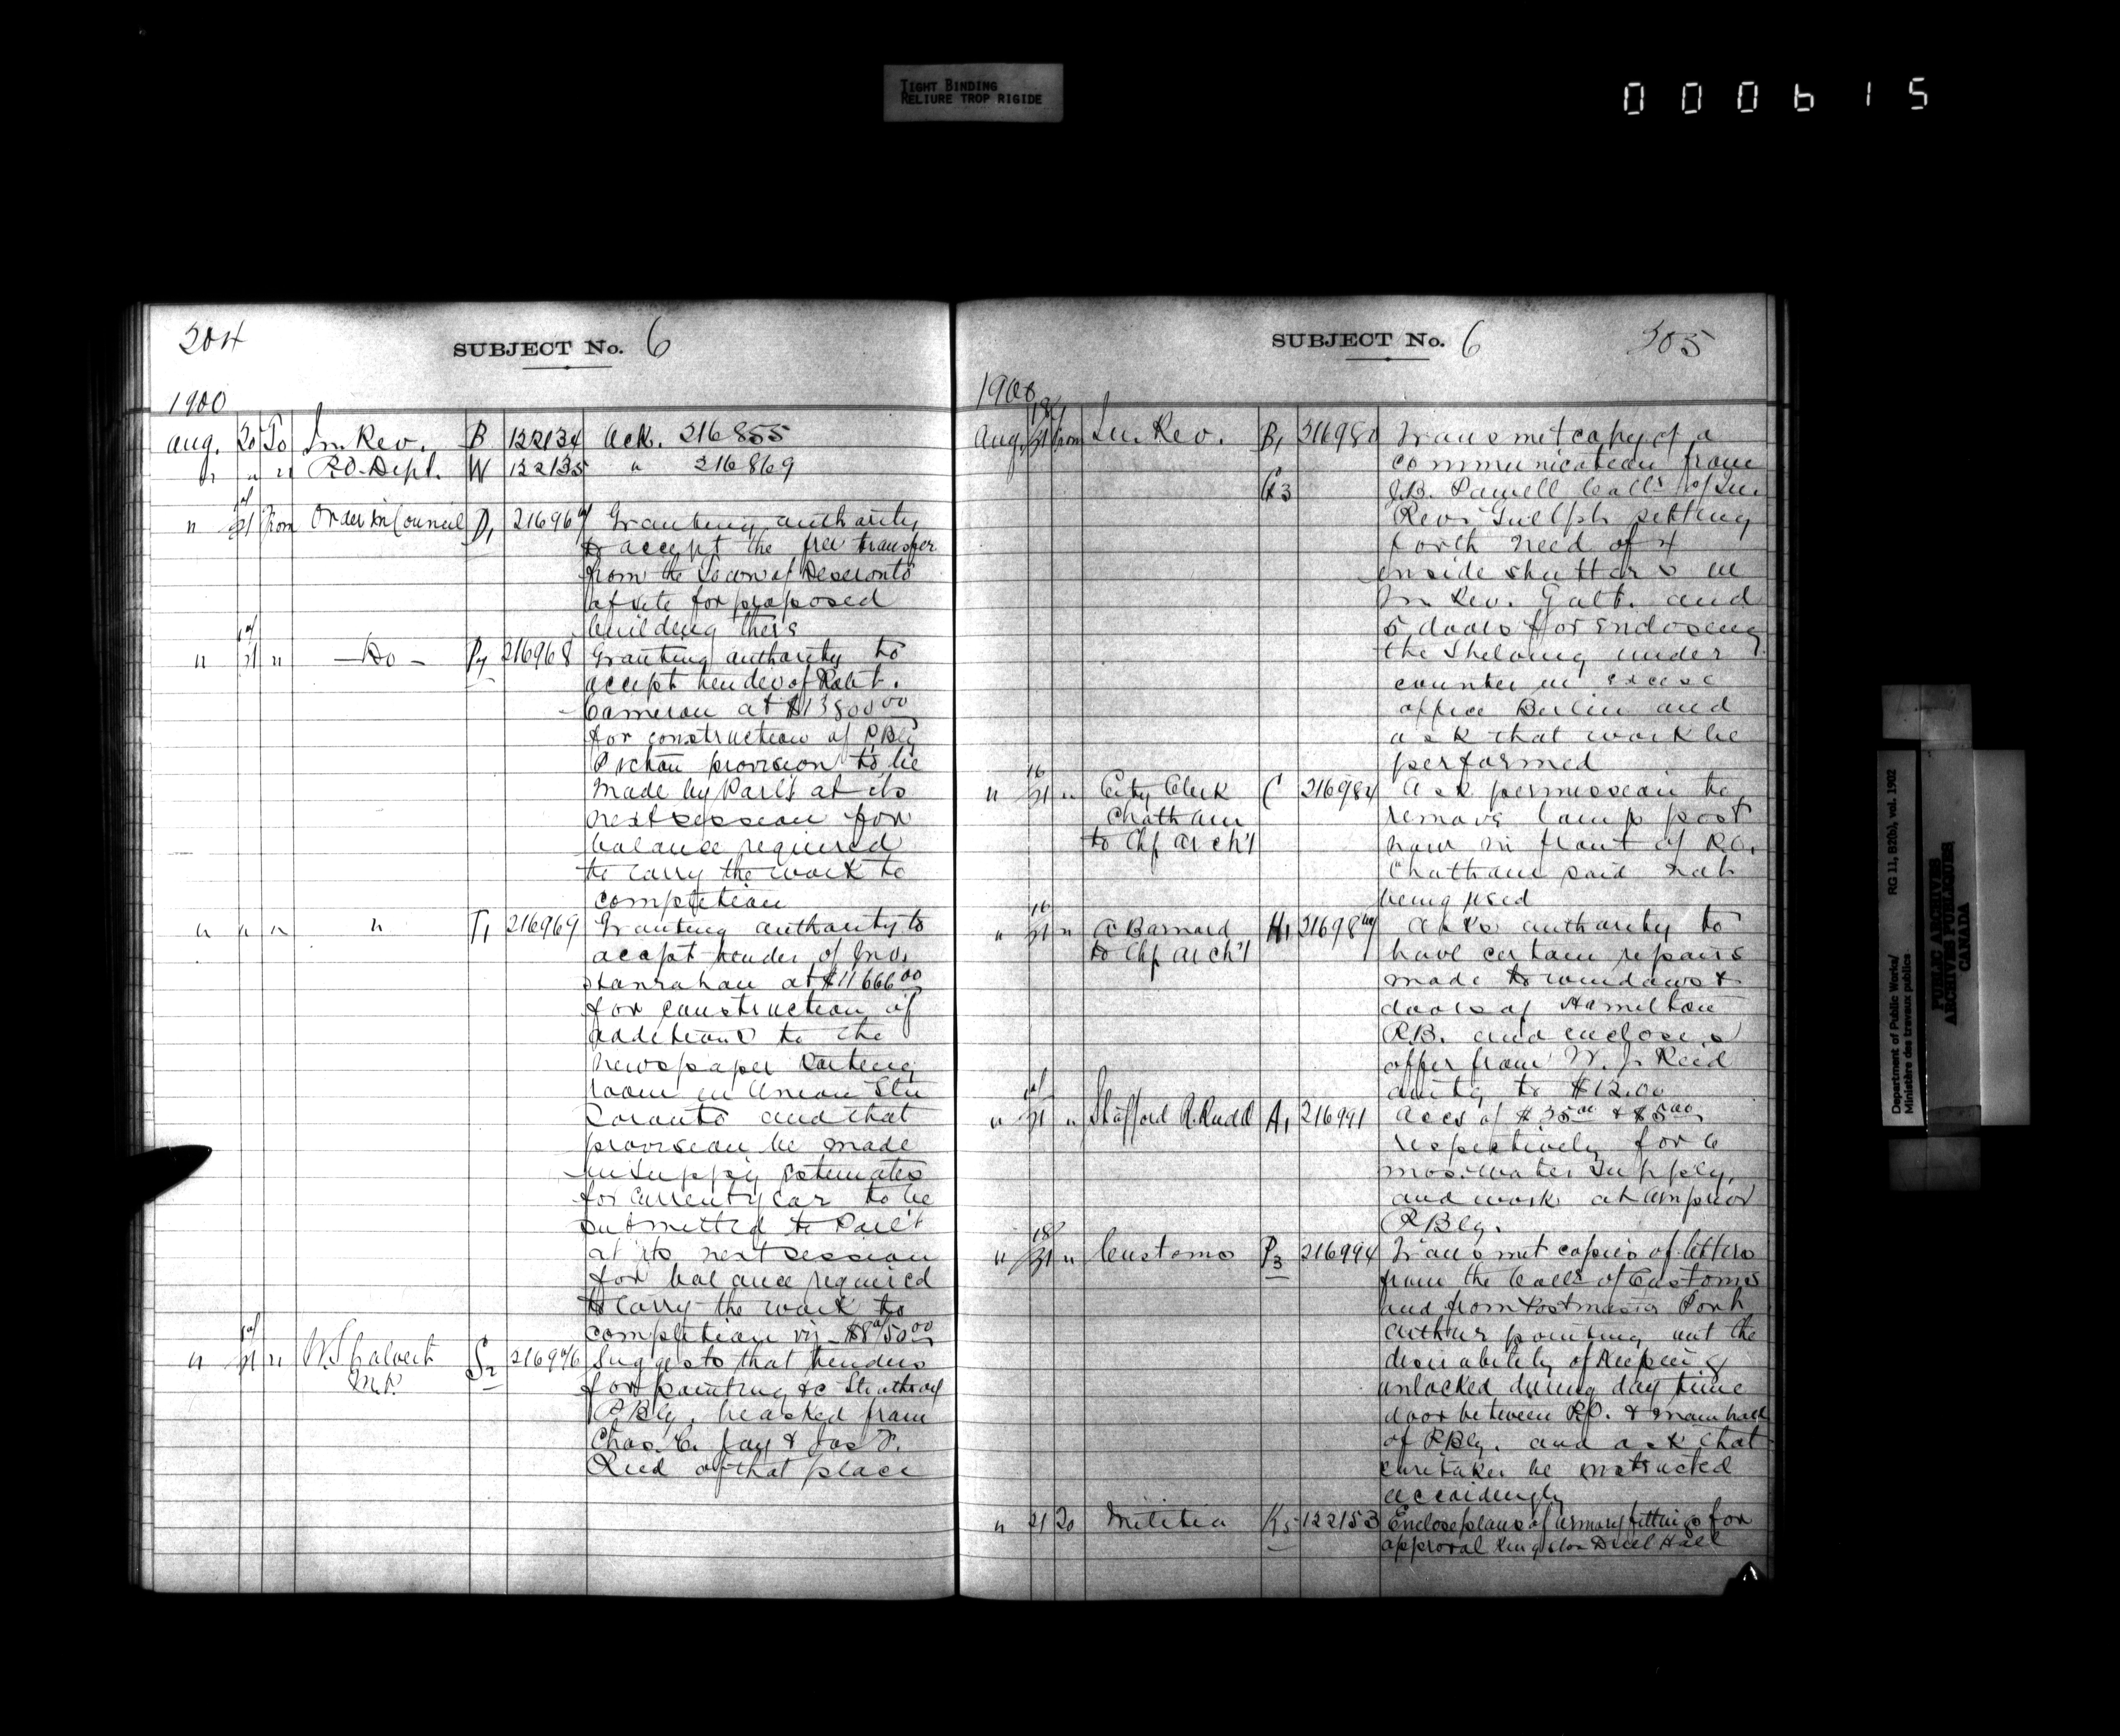 TIGHT BINDING
RELIURE TROP RIGIDE
000615
304
SUBJECT No. 6
1900
Aug. 20 To In. Rev. B 122134 Ack. 216855
" " " P.O. Dept. W 122135 " 216869
" 21 from Order in Council D1 Granting authority
to accept the free transfer
from the Town of Deseronto
of site for proposed
building there
" 21 " —Do— P4 216968 Granting authority to
accept tender of Robt.
Cameron at $13800.00
for construction of P.Blg
Picton provision to be
made by Parl't at its
next session for
balance required
to carry the work to
completion
" " " " T1 216969 Granting authority to
accept tender of Jno.
Hanrahan at $11666.00
for construction of
additions to the
newspaper sorting
room in Union Stn
Toronto and that
provision be made
in supply estimates
for current year to be
submitted to Parl't
at its next session
for balance required
to carry the work to
completion viz
" 21 " W.S. Calvert S2 Suggests that tenders
M.P. for painting &c Strathroy
P.Blg. be asked from
Chas. C. Jay & Jos P.
Reed of that place
SUBJECT No. 6
305
1900
Aug. 21 from In. Rev. B1 Transmit copy of a
communication from
G3 J.B. Powell Collr of In.
Rev. Guelph setting
forth need of 4
inside shutters in
In Rev. Galt. and
5 doors for enclosing
the shelving under
counter in excise
office Berlin and
ask that work be
performed
16
" 21 " City Clerk C 216984 Ask permission to
Chatham remove lamp post
to Chf Arch't now in front of P.O.
Chatham said not
being used
16
" 21 " A Barnard H1 Asks authority to
to Chf Arch't have certain repairs
made to windows &
doors of Hamilton
P.B. and encloses
offer from W. J. Reid
amtg to $12.00
" 21 " Stafford R. Rudd A1 216991 Accs of $35.00 & $5.00
respectively for 6
mos. water supply,
and work at Arnprior
P.Blg.
18
" 21 " Customs P3 216994 Transmit copies of letters
from the Collr of Customs
and from Postmaster Port
Arthur pointing out the
desirability of keeping
unlocked during day time
door between P.O. & main hall
of P.Blg. and ask that
caretaker be instructed
accordingly
" 21 To Militia K5 122153 Enclose plans of armory fittings for
approval Kingston Drill Hall
Department of Public Works/
Ministère des travaux publics
RG 11, B2(b), vol. 1902
PUBLIC ARCHIVES
ARCHIVES PUBLIQUES
CANADA